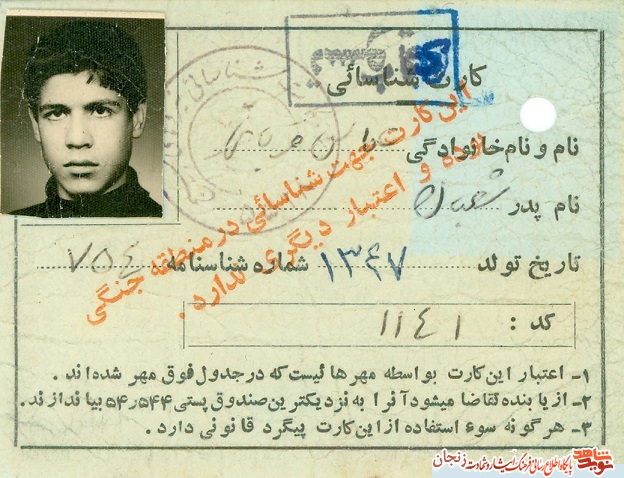 کارت شناسائی
نام و نام خانوادگی
نام پدر شعبان
تاریخ تولد ۱۳۴۷ شماره شناسنامه ۷۵۴
کد : ۱۱۴۱
این کارت جهت شناسائی در منطقه جنگی
بوده و اعتبار دیگری ندارد .
۱- اعتبار این کارت بواسطه مهرهائیست که در جدول فوق مهر شده اند .
۲- از یابنده تقاضا میشود آنرا به نزدیکترین صندوق پستی ۵۴ر۵۴۴ بیاندازند.
۳- هرگونه سوء استفاده از این کارت پیگرد قانونی دارد .
نوید شاهد
پایگاه اطلاع رسانی فرهنگ ایثار و شهادت زنجان